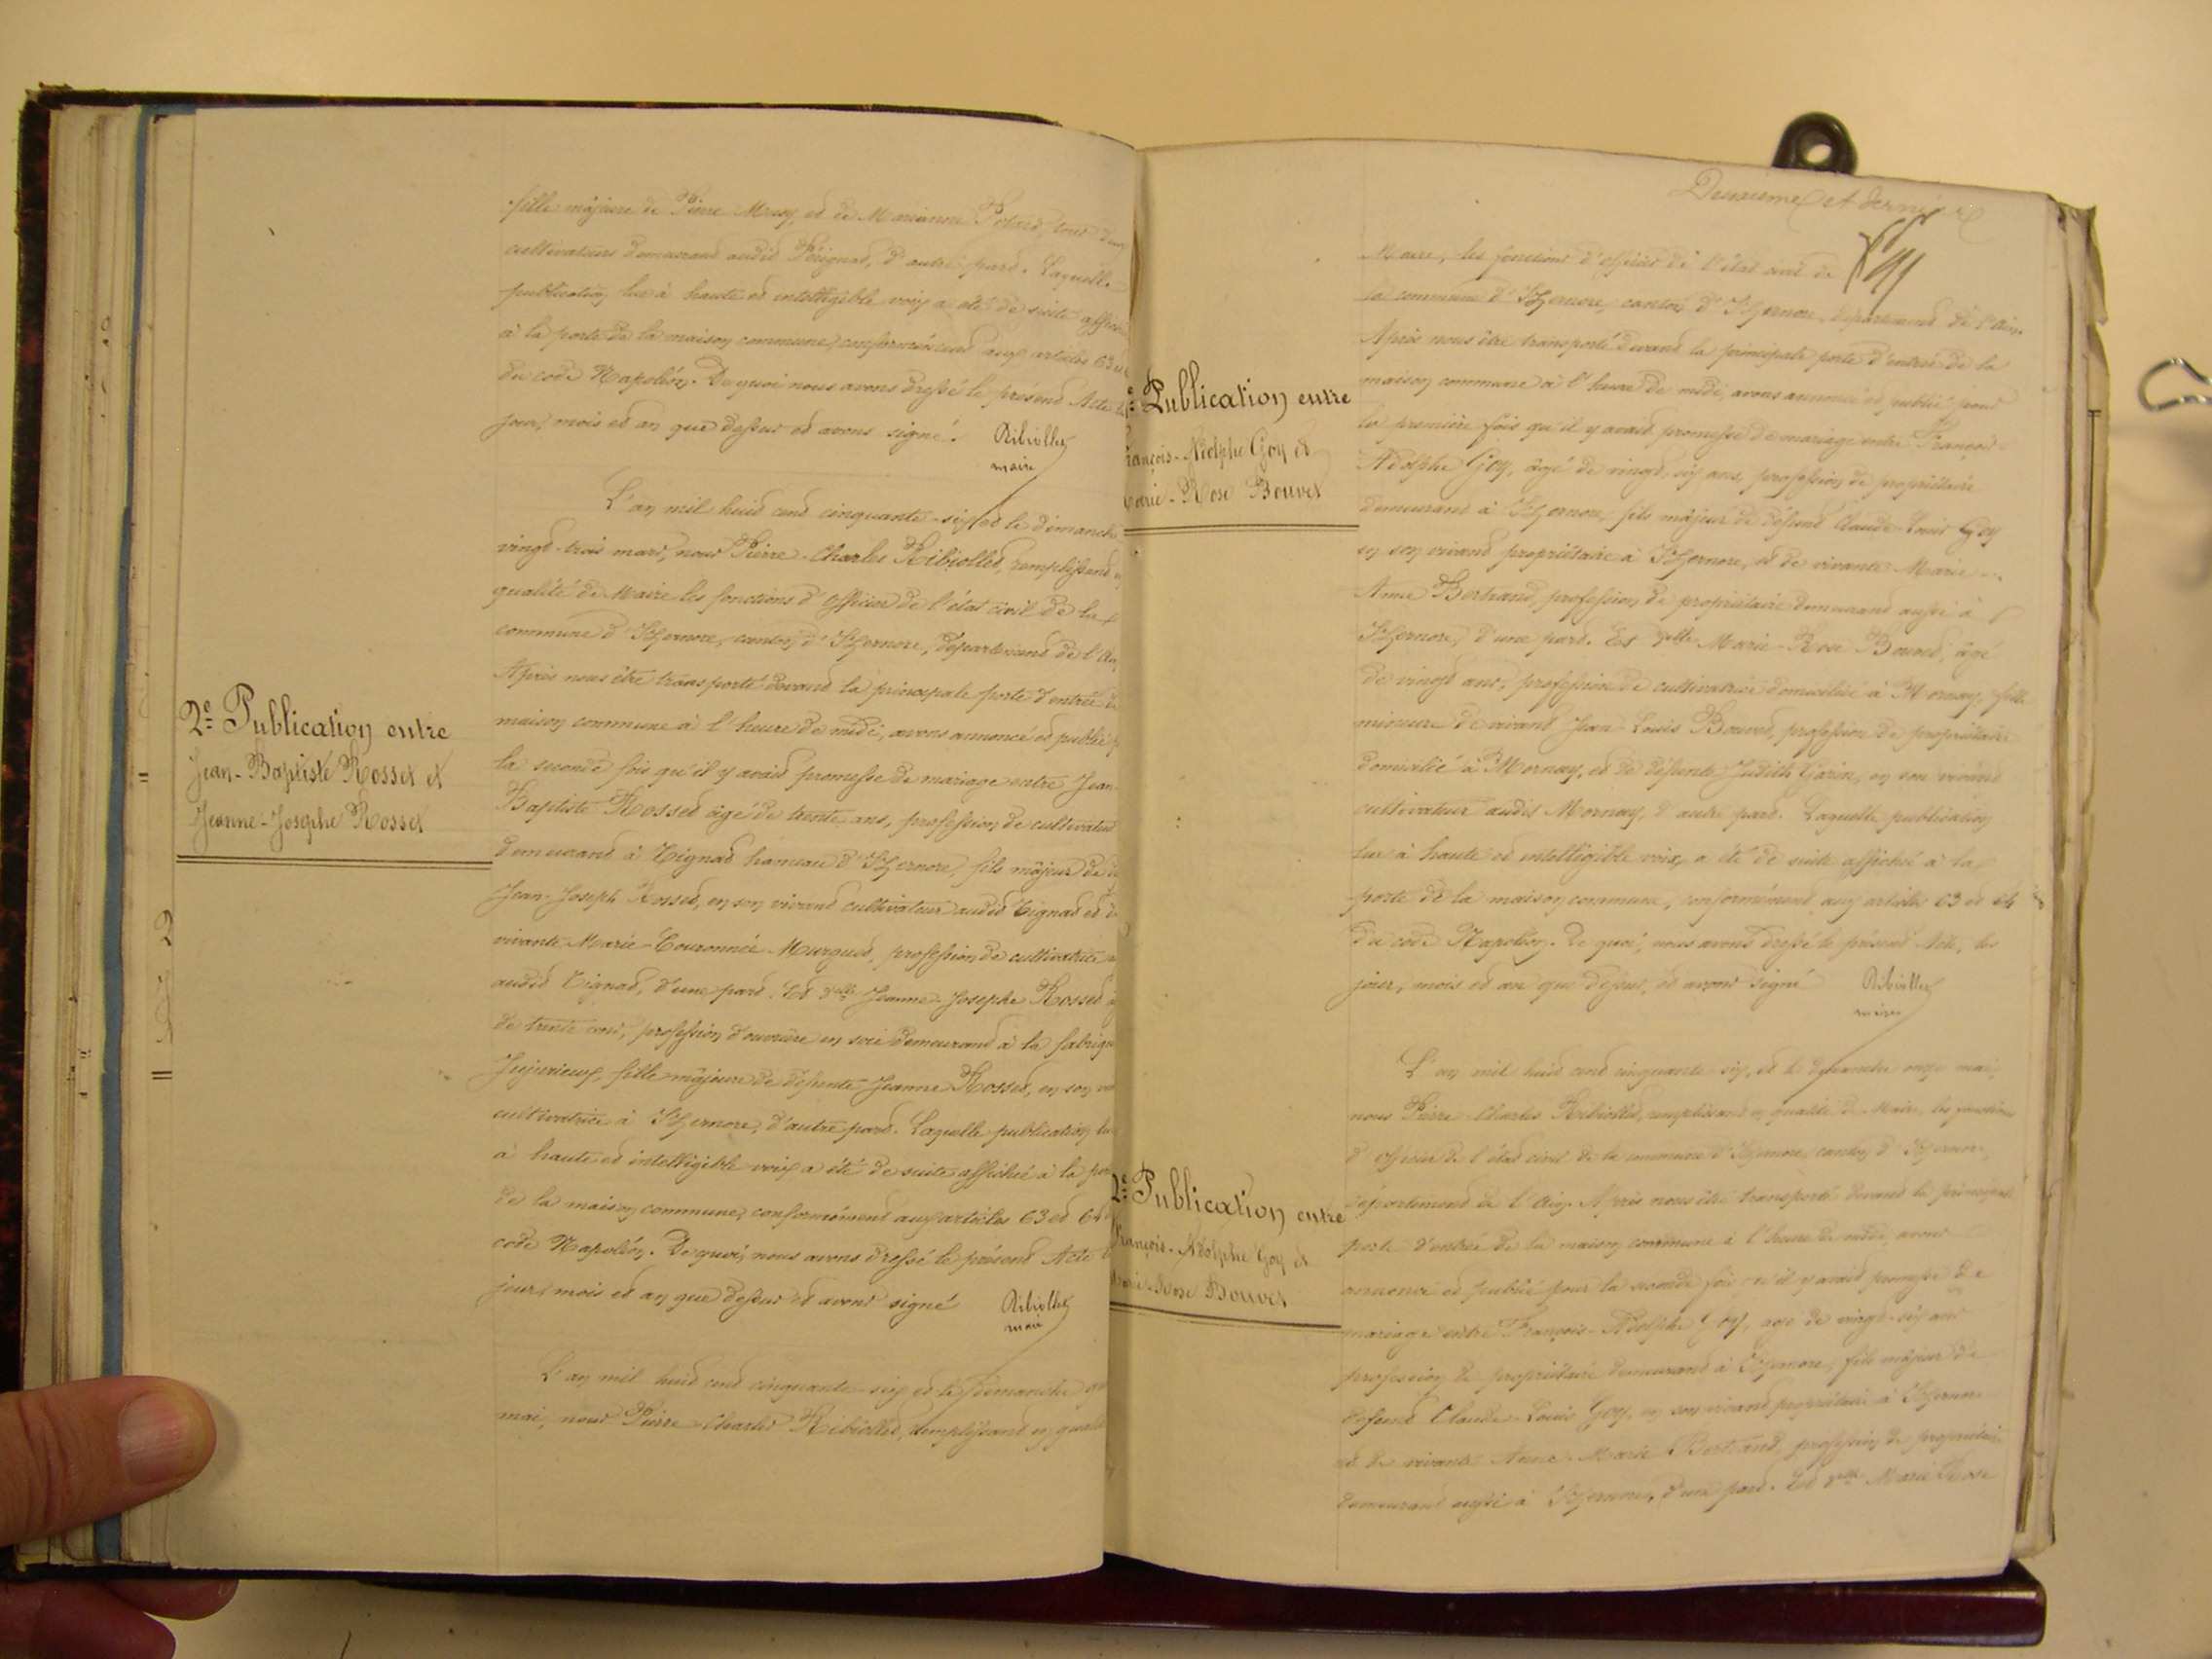 fille majeure de Pierre Mussy, et de Marianne Potard, tous deux
cultivateurs demeurant audit Pérignat, d'autre part. Laquelle
publication lue à haute et intelligible voix a été de suite affichée
à la porte de la maison commune, conformément aux articles 63 et
du code Napoléon. De quoi nous avons dressé le présent Acte les
jour, mois et an que dessus et avons signé.
Ribiollet
maire
2e Publication entre
Jean-Baptiste Rosset et
Jeanne-Josephe Rosset
L'an mil huit cent cinquante-six, et le dimanche
vingt-trois mars, nous Pierre-Charles Ribiollet, remplissant en
qualité de Maire les fonctions d'officier de l'état civil de la
commune d'Izernore, canton d'Izernore, département de l'Ain
Après nous être transporté devant la principale porte d'entrée de
maison commune à l'heure de midi, avons annoncé et publié
la seconde fois qu'il y avait promesse de mariage entre Jean-
Baptiste Rosset âgé de trente ans, profession de cultivateur
demeurant à Tignat hameau d'Izernore, fils majeur de
Jean-Joseph Rosset, en son vivant cultivateur audit Tignat et de
vivante Marie-Couronnée Murguet, profession de cultivatrice
audit Tignat, d'une part. Et dlle Jeanne-Josephe Rosset
de trente ans, profession d'ouvrière en soie demeurant à la fabrique
Jujurieux, fille majeure de défunte Jeanne Rosset, en son
cultivatrice à Izernore, d'autre part. Laquelle publication lue
à haute et intelligible voix a été de suite affichée à la porte
de la maison commune, conformément aux articles 63 et 64
code Napoléon. De quoi, nous avons dressé le présent Acte
jour, mois et an que dessus et avons signé
Ribiollet
maire
L'an mil huit cent cinquante-six et le dimanche
mai, nous Pierre-Charles Ribiollet, remplissant en qualité
Deuxième et dernière
Maire, les fonctions d'officier de l'état civil de
la commune d'Izernore, canton d'Izernore, département de l'Ain.
Après nous être transporté devant la principale porte d'entrée de la
maison commune à l'heure de midi, avons annoncé et publié pour
la première fois qu'il y avait promesse de mariage entre François-
Adolphe Goy, âgé de vingt-six ans, profession de propriétaire
demeurant à Izernore, fils majeur de défunt Claude-Louis Goy
en son vivant propriétaire à Izernore, et de vivante Marie
Anne Bertrand, profession de propriétaire demeurant aussi à
Izernore, d'une part. Et dlle Marie-Rose Bouvet, âgé
de vingt ans, profession de cultivatrice domiciliée à Mornay, fille
mineure de vivant Jean-Louis Bouvet, profession de propriétaire
domicilié à Mornay, et de défunte Judith Garin, en son vivant
cultivateur audit Mornay, d'autre part. Laquelle publication
lue à haute et intelligible voix, a été de suite affichée à la
porte de la maison commune, conformément aux articles 63 et 64
du code Napoléon. De quoi, nous avons dressé le présent Acte, les
jour, mois et an que dessus, et avons signé
Ribiollet
maire
Publication entre
François-Adolphe Goy et
Marie-Rose Bouvet
L'an mil huit cent cinquante six, et le dimanche onze mai,
nous Pierre-Charles Ribiollet, remplissant en qualité de Maire, les fonctions
d'officier de l'état civil de la commune d'Izernore, canton d'Izernore,
département de l'Ain. Après nous être transporté devant la principale
porte d'entrée de la maison commune à l'heure de midi, avons
annoncé et publié pour la seconde fois qu'il y avait promesse de
mariage entre François-Adolphe Goy, âgé de vingt-six ans
profession de propriétaire demeurant à Izernore, fils majeur de
défunt Claude-Louis Goy, en son vivant propriétaire à Izernore
et de vivante Anne-Marie Bertrand, profession de propriétaire
demeurant aussi à Izernore, d'une part. Et dlle Marie Rose
2e Publication entre
François-Adolphe Goy et
Marie-Rose Bouvet